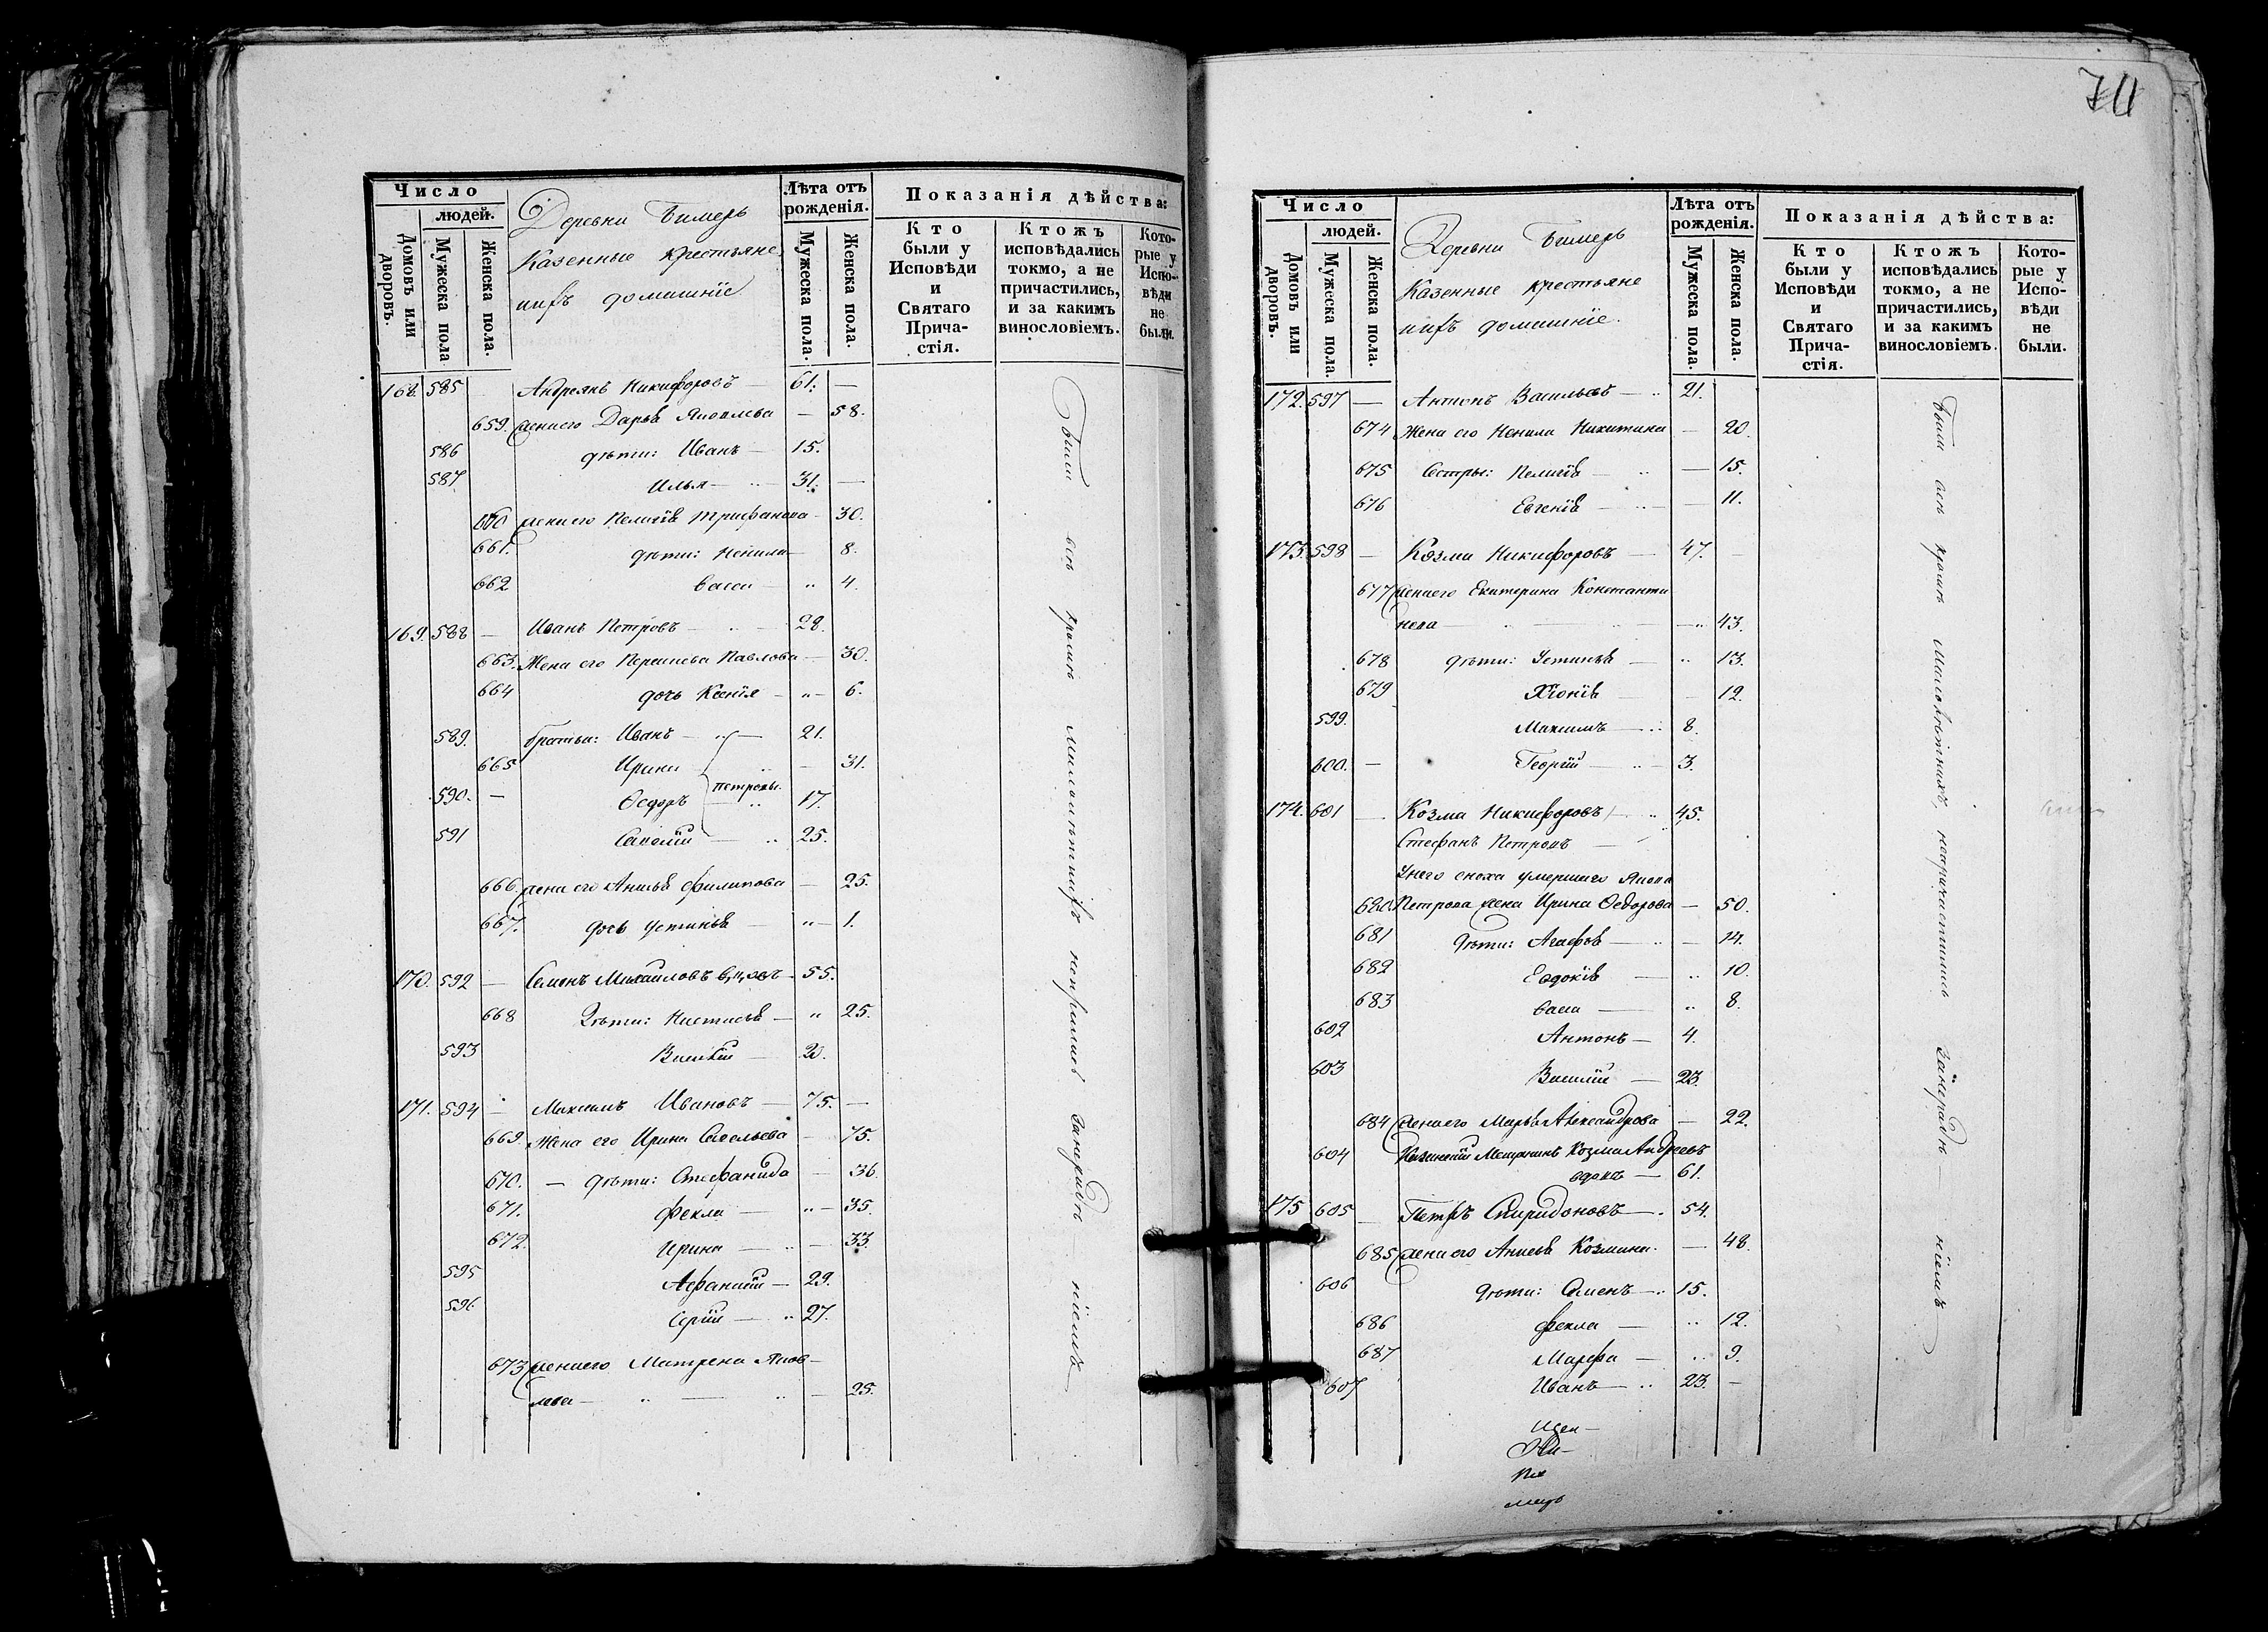 711
Число
людей.
Домовъ или дворовъ.
Мужеска пола
Женска пола.
Деревни Бимерь
Казенные крестьяне
ихъ домашніе
Лѣта отъ рожденія.
Мужеска пола.
Женска пола.
Показанія дѣйства:
Кто были у Исповѣди и Святаго Прича-стія.
Ктожъ исповѣдались токмо, а не причастились, и за какимъ винословіемъ.
Кото-рые у Испо-вѣди не были.
168. 585 Андреянъ Никифоровъ — 61. —
659. жена его Дарья Яковлева — 58.
586 дѣти: Иванъ — 15.
587 Илья — 31. —
660 жена его Пелагія Трифанова — 30.
661. дѣти: Ненила — 8.
662 Васса — 4.
169. 588 — Иванъ Петровъ — 28.
663. Жена его Парасковья Павлова — 30.
664 дочь Ксенія — 6.
589. братья: Иванъ — 21.
665 Ирина — 31.
Петровы.
590. — Ѳедоръ — 17.
591 Савелій — 25.
666. жена его Анисья Филипова — 25.
667. дочь Устинья — 1.
170. 592 — Семенъ Михаиловъ — 55.
668 Дѣти: Настасья — 25.
593 Василій — 20.
171. 594 — Максимъ Ивановъ — 75. —
669. Жена его Ирина Савельева — 75.
670. — дѣти: Стефанида — 36.
671. Фекла — 35.
672. Ирина — 33
595 Афанасій — 29.
596 Сергій — 27.
673 жена его Матрена Яков-
лева — 25.
были всѣ кромѣ малолѣтнихъ
Число
людей.
Домовъ или дворовъ.
Мужеска пола.
Женска пола.
Деревни Бимерь
Казенные крестьяне
ихъ домашніе.
Лѣта отъ рожденія.
Мужеска пола.
Женска пола.
Показанія дѣйства:
Кто были у Исповѣди и Святаго Прича-стія.
Ктожъ исповѣдались токмо, а не причастились, и за какимъ винословіемъ.
Кото-рые у Испо-вѣди не были.
172. 597 — Антипъ Васильевъ — 21.
674 Жена его Ненила Никитина — 20.
675 Сестры: Пелагія — 15.
676 Евгенія — 11.
173. 598 — Козма Никифоровъ — 47. —
677 жена его Екатерина Константи
нова — 43.
678 дѣти: Устинья — 13.
679 Хіонія — 12.
599. Максимъ — 8.
600. — Георгій — 3.
174. 601 — Козма Никифоровъ — 45.
Стефанъ Петровъ —
Унего сноха умершаго Якова
680 Петрова жена Ирина Ѳедорова — 50.
681 Дѣти: Агафья — 14.
682 Евдокія — 10.
683 Васса — 8.
602 Антонъ — 4.
603 Василій — 23.
684 жена его Марья Александрова — 22.
604 Казанскій Мещанинъ Козма Андреевъ
вдовъ — 61.
175 605 — Петръ Спиридоновъ — 54.
685 жена его Анисья Козмина. — 48.
606 Дѣти: Семенъ — 15.
686 Фекла — 12.
687 Марфа — 9.
607 Иванъ — 23. —
были всѣ кромѣ малолѣтнихъ,